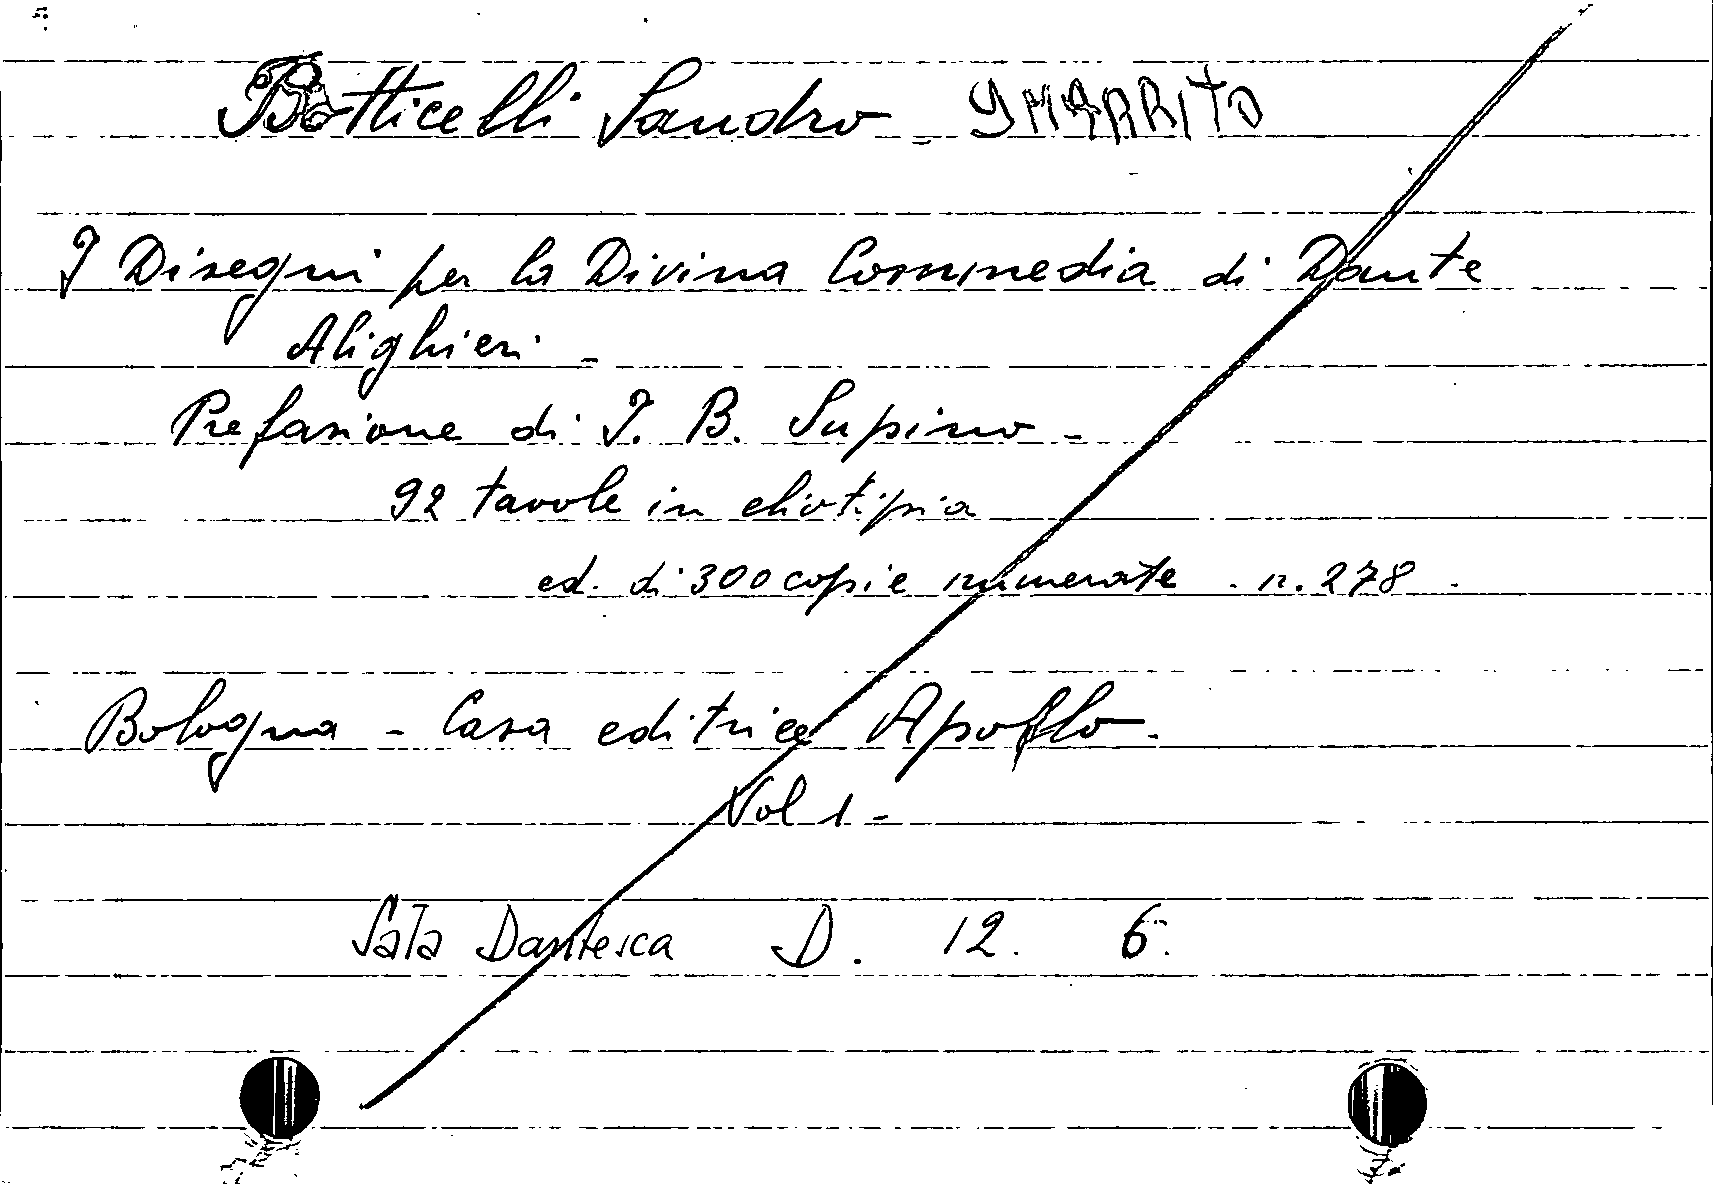 Botticelli Sandro - SMARRITO
I Disegni per la Divina Commedia di Dante
Alighieri -
Prefazione di I. B. Supino -
92 tavole in eliotipia
ed. di 300 copie numerate - n. 278 -
Bologna - Casa editrice Apollo -
Vol 1 -
Sala Dantesca D. 12. 6.